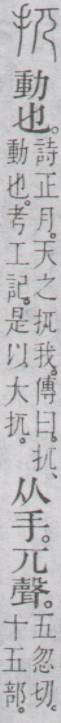 扤
動也。
詩正月。天之扤我。傳曰。扤、
動也。考工記。是以大扤。
从手。兀聲。
五忽切。
十五部。